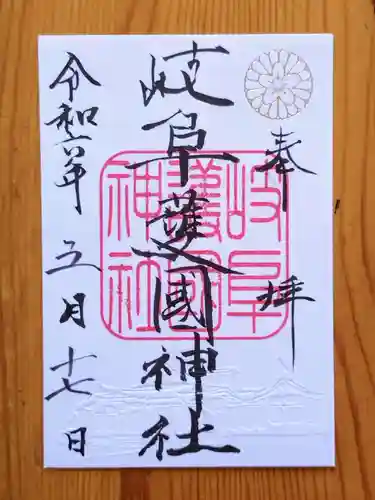 奉拝
岐阜護國神社
岐阜
護國
神社
令和六年
五月十七日